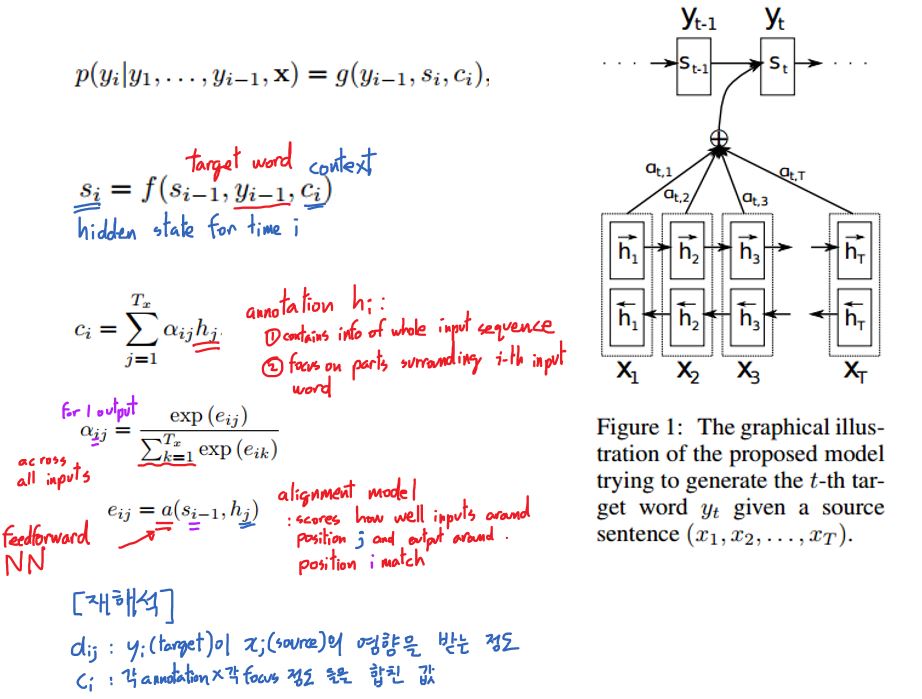 p(y_i|y_1, . . . , y_{i−1}, x) = g(y_{i−1}, s_i, c_i),
target word context
s_i = f(s_{i−1}, y_{i−1}, c_i)
hidden state for time i
c_i = \sum_{j=1}^{T_x} α_{ij}h_j.
annotation h_i :
① contains info of whole input sequence
② focus on parts surrounding i-th input
word
for 1 output
α_{ij} = exp (e_{ij}) / \sum_{k=1}^{T_x} exp (e_{ik})
across
all inputs
e_{ij} = a(s_{i−1}, h_j)
feedforward
NN
alignment model
: scores how well inputs around
position j and output around
position i match
[재해석]
αij : yi(target)이 xj(source)의 영향을 받는 정도
Ci : 각 annotation × 각 focus 정도 들을 합친 값
y_{t-1} y_t
. . . s_{t-1} s_t . . .
⊕
a_{t,1} a_{t,2} a_{t,3} a_{t,T}
→h_1 →h_2 →h_3 →h_T
←h_1 ←h_2 ←h_3 ←h_T
x_1 x_2 x_3 x_T
Figure 1: The graphical illus-
tration of the proposed model
trying to generate the t-th tar-
get word y_t given a source
sentence (x_1, x_2, . . . , x_T).